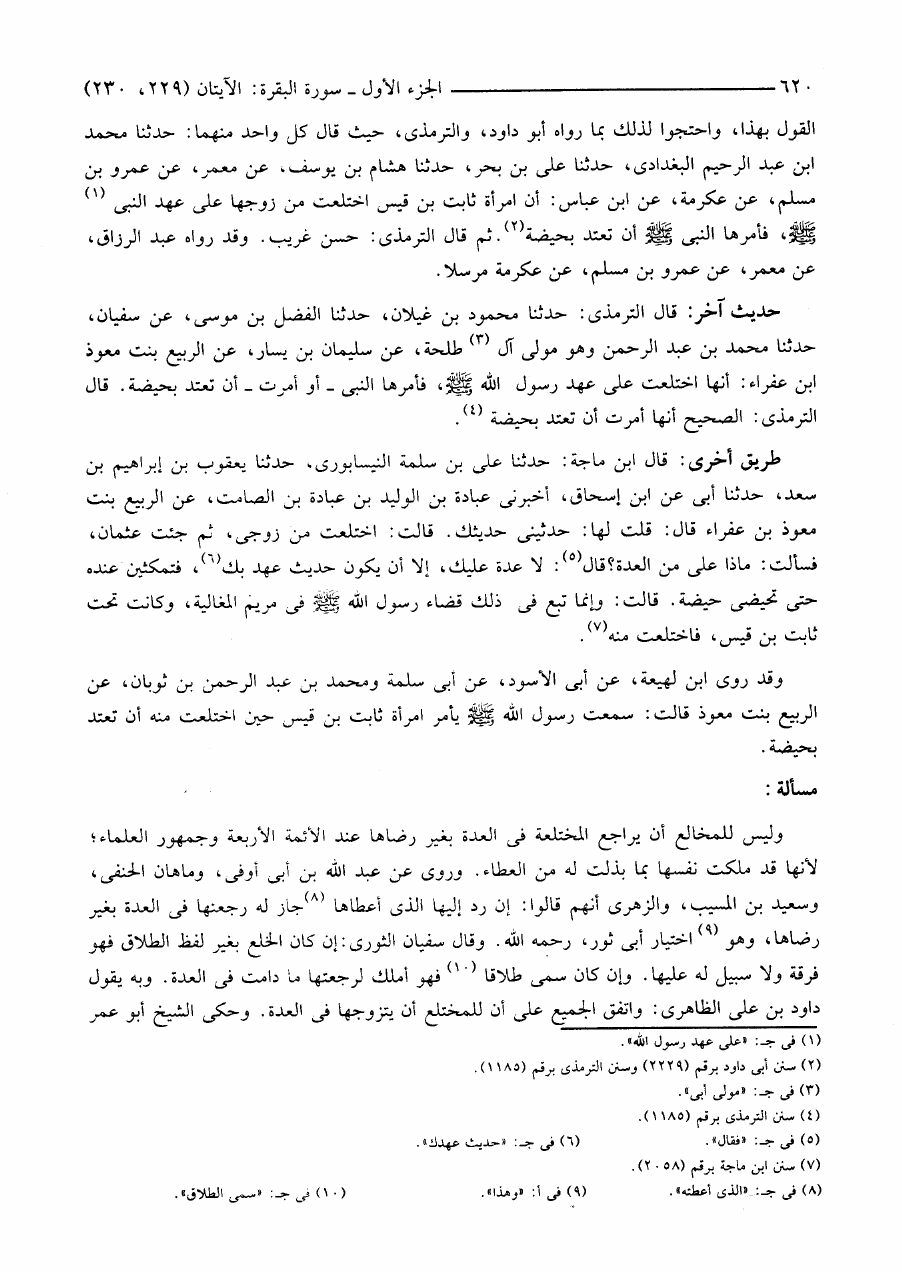 ٦٢٠ ـــــــــــــــــ الجزء الأول ـ سورة البقرة: الآيتان (٢٢٩، ٢٣٠)
القول بهذا، واحتجوا لذلك بما رواه أبو داود، والترمذى، حيث قال كل واحد منهما: حدثنا محمد
ابن عبد الرحيم البغدادى، حدثنا على بن بحر، حدثنا هشام بن يوسف، عن معمر، عن عمرو بن
مسلم، عن عكرمة، عن ابن عباس: أن امرأة ثابت بن قيس اختلعت من زوجها على عهد النبى (١)
ﷺ، فأمرها النبى ﷺ أن تعتد بحيضة(٢). ثم قال الترمذى: حسن غريب. وقد رواه عبد الرزاق،
عن معمر، عن عمرو بن مسلم، عن عكرمة مرسلا.
حديث آخر: قال الترمذى: حدثنا محمود بن غيلان، حدثنا الفضل بن موسى، عن سفيان،
حدثنا محمد بن عبد الرحمن وهو مولى آل (٣) طلحة، عن سليمان بن يسار، عن الربيع بنت معوذ
ابن عفراء: أنها اختلعت على عهد رسول الله ﷺ، فأمرها النبى ـ أو أمرت ـ أن تعتد بحيضة. قال
الترمذى: الصحيح أنها أمرت أن تعتد بحيضة (٤).
طريق أخرى: قال ابن ماجة: حدثنا على بن سلمة النيسابورى، حدثنا يعقوب بن إبراهيم بن
سعد، حدثنا أبى عن ابن إسحاق، أخبرنى عبادة بن الوليد بن عبادة بن الصامت، عن الربيع بنت
معوذ بن عفراء قال: قلت لها: حدثينى حديثك. قالت: اختلعت من زوجى، ثم جئت عثمان،
فسألت: ماذا على من العدة؟قال(٥): لا عدة عليك، إلا أن يكون حديث عهد بك(٦)، فتمكثين عنده
حتى تحيضى حيضة. قالت: وإنما تبع فى ذلك قضاء رسول الله ﷺ فى مريم المغالية، وكانت تحت
ثابت بن قيس، فاختلعت منه(٧).
وقد روى ابن لهيعة، عن أبى الأسود، عن أبى سلمة ومحمد بن عبد الرحمن بن ثوبان، عن
الربيع بنت معوذ قالت: سمعت رسول الله ﷺ يأمر امرأة ثابت بن قيس حين اختلعت منه أن تعتد
بحيضة.
مسألة :
وليس للمخالع أن يراجع المختلعة فى العدة بغير رضاها عند الأئمة الأربعة وجمهور العلماء؛
لأنها قد ملكت نفسها بما بذلت له من العطاء. وروى عن عبد الله بن أبى أوفى، وماهان الحنفى،
وسعيد بن المسيب، والزهرى أنهم قالوا: إن رد إليها الذى أعطاها (٨)جاز له رجعتها فى العدة بغير
رضاها، وهو (٩) اختيار أبى ثور، رحمه الله. وقال سفيان الثورى:إن كان الخلع بغير لفظ الطلاق فهو
فرقة ولا سبيل له عليها. وإن كان سمى طلاقا (١٠) فهو أملك لرجعتها ما دامت فى العدة. وبه يقول
داود بن على الظاهرى: واتفق الجميع على أن للمختلع أن يتزوجها فى العدة. وحكى الشيخ أبو عمر
(١) فى جـ: «على عهد رسول الله».
(٢) سنن أبى داود برقم (٢٢٢٩) وسنن الترمذى برقم (١١٨٥).
(٣) فى جـ: «مولى أبى».
(٤) سنن الترمذى برقم (١١٨٥).
(٥) فى جـ: «فقال». (٦) فى جـ: «حديث عهدك».
(٧) سنن ابن ماجة برقم (٢٠٥٨).
(٨) فى جـ: «الذى أعطته». (٩) فى أ: «وهذا». (١٠) فى جـ: «سمى الطلاق».